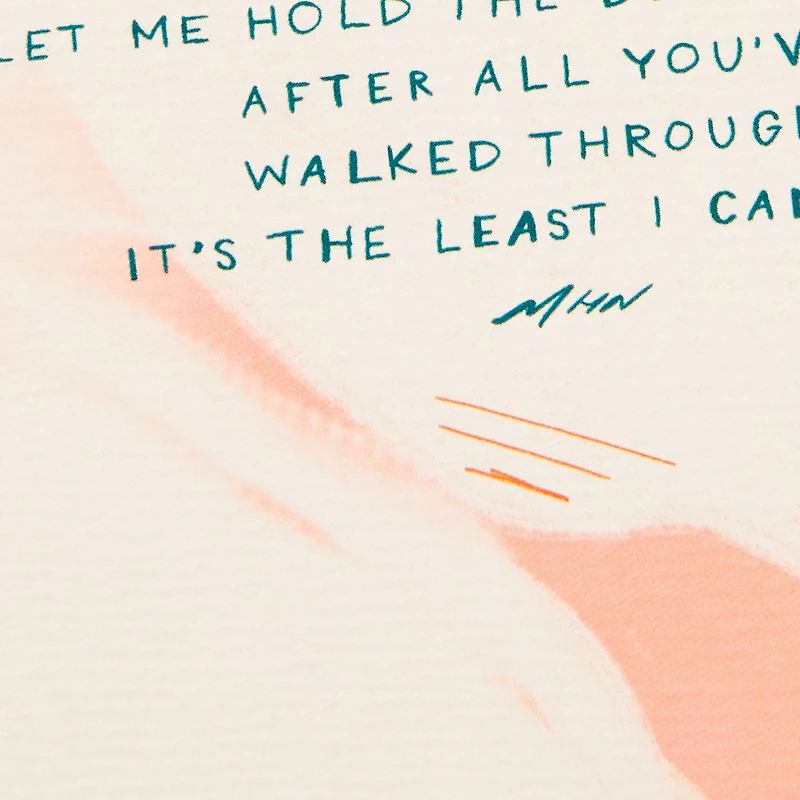 LET ME HOLD THE
AFTER ALL YOU'V
WALKED THROUGH
IT'S THE LEAST I CAN
MHN